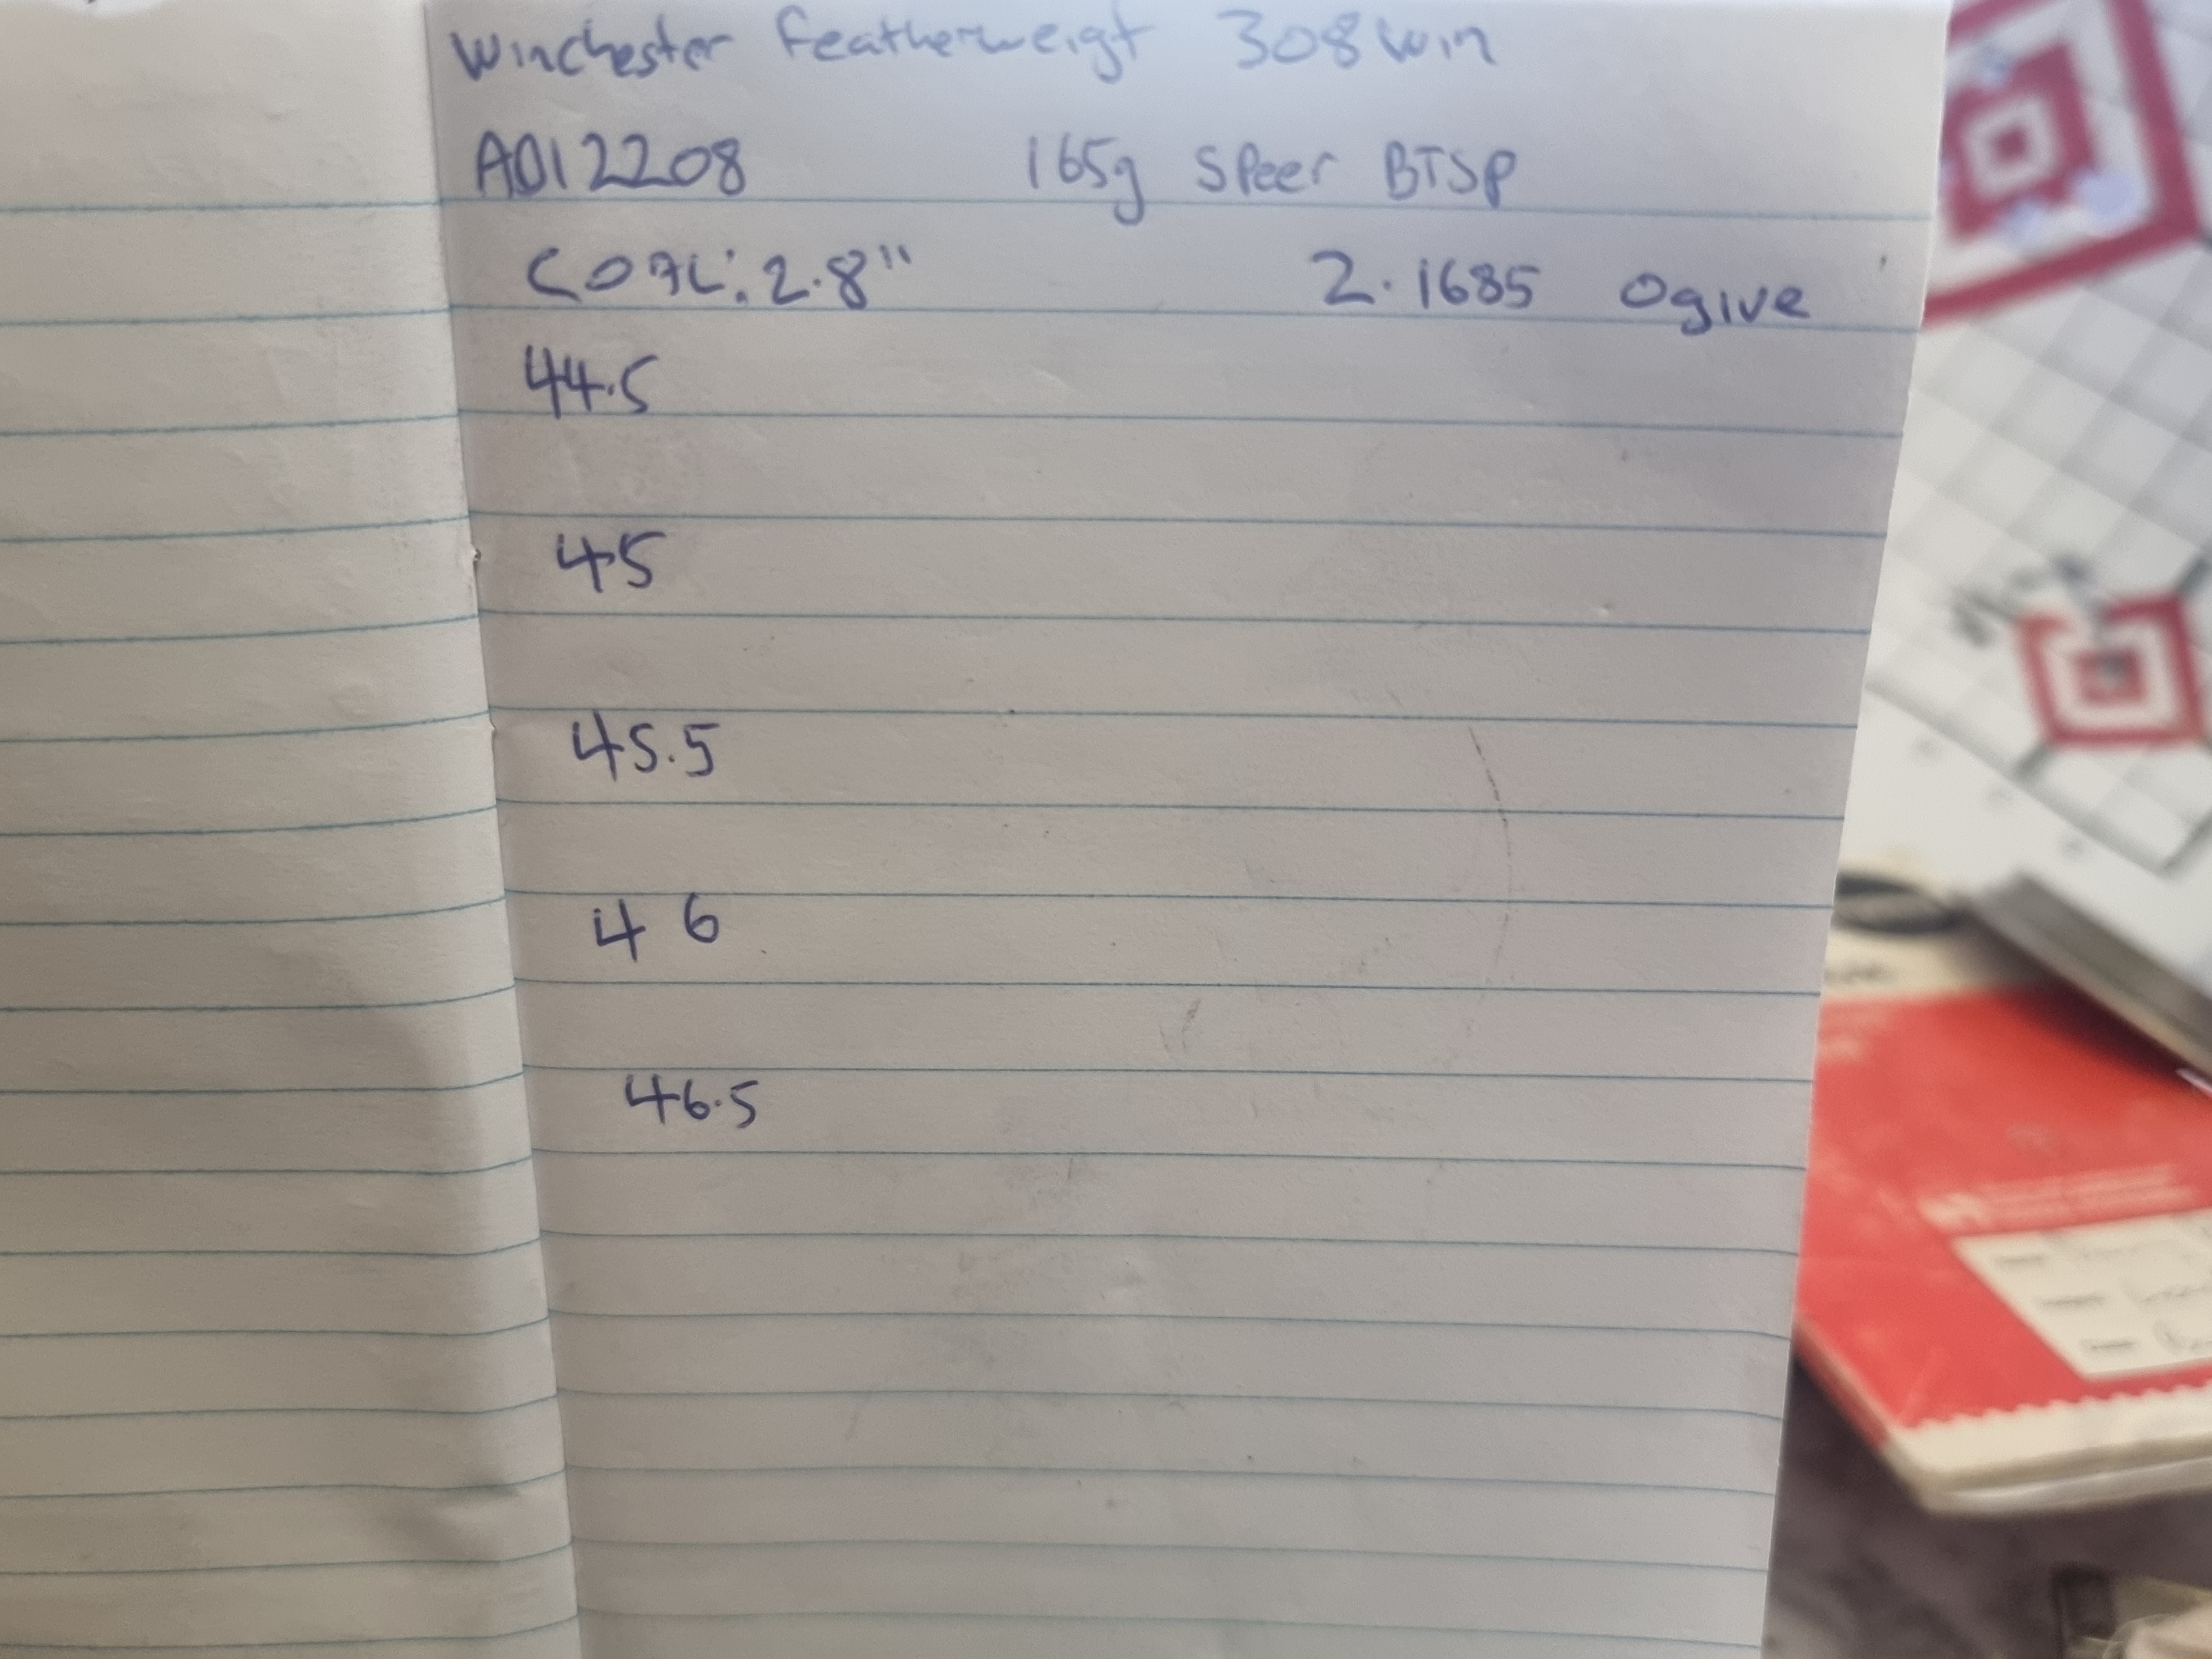 Winchester Featherweigt 308 win
ADI 2208 165g Speer BTSP
COAL: 2.8" 2.1685 Ogive
44.5
45
45.5
46
46.5